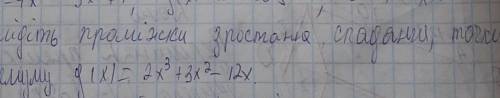 йдіть проміжки зростання, спадання, точки
емуму f(x) = 2x³+3x²-12x.